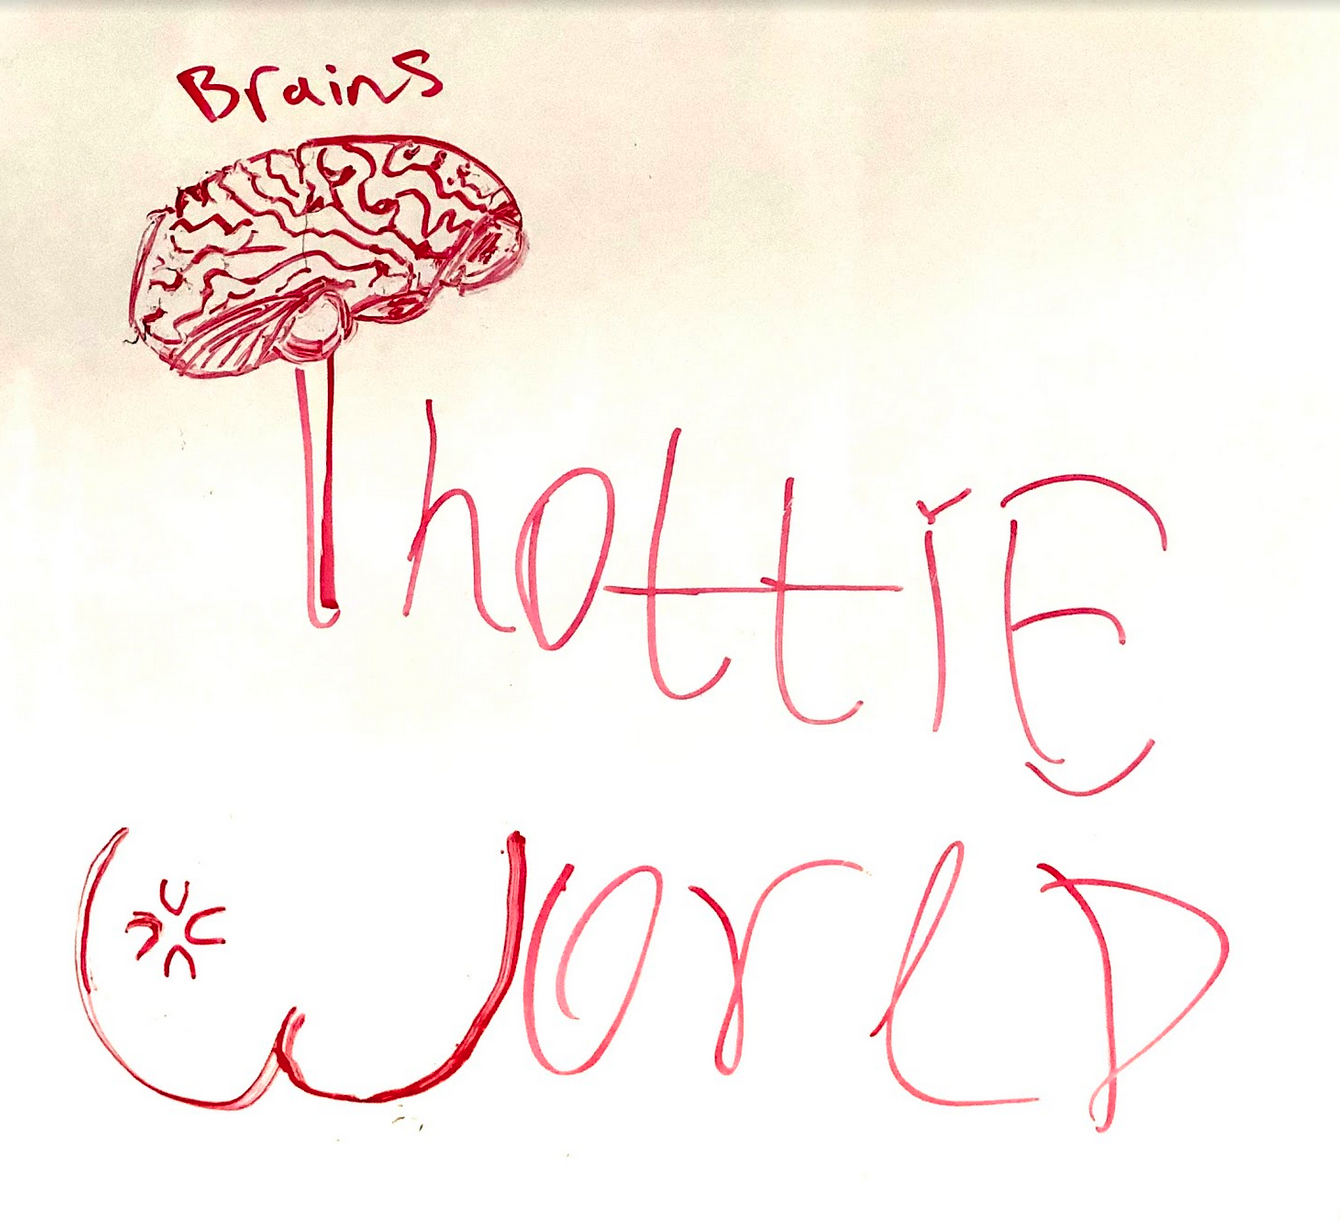 Brains
ThottiE
WorlD